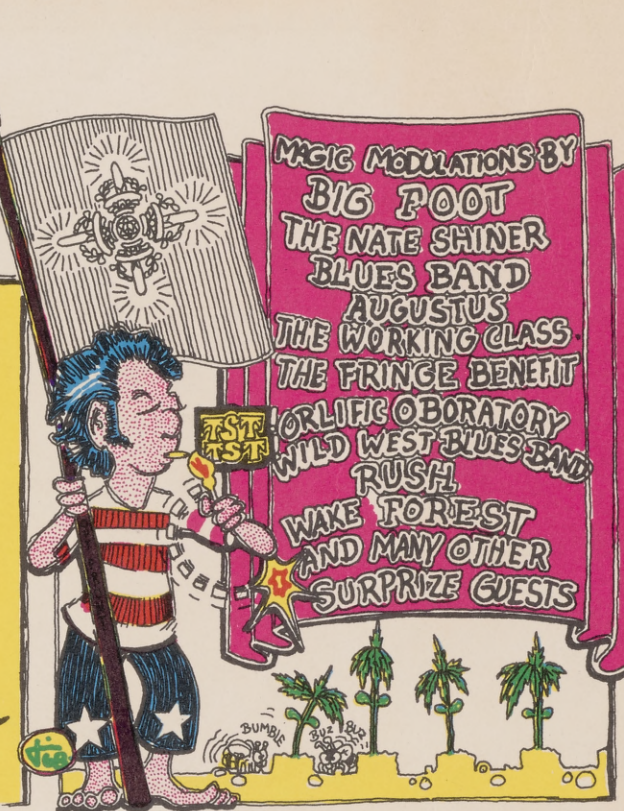 MAGIC MODULATIONS BY
BIG FOOT
THE NATE SHINER
BLUES BAND
AUGUSTUS
THE WORKING CLASS.
THE FRINGE BENEFIT
ORLIFIC OBORATORY
WILD WEST BLUES BAND
RUSH
WAKE FOREST
AND MANY OTHER
SURPRIZE GUESTS
TST
TST
BUMBLE
BUZ BUZ